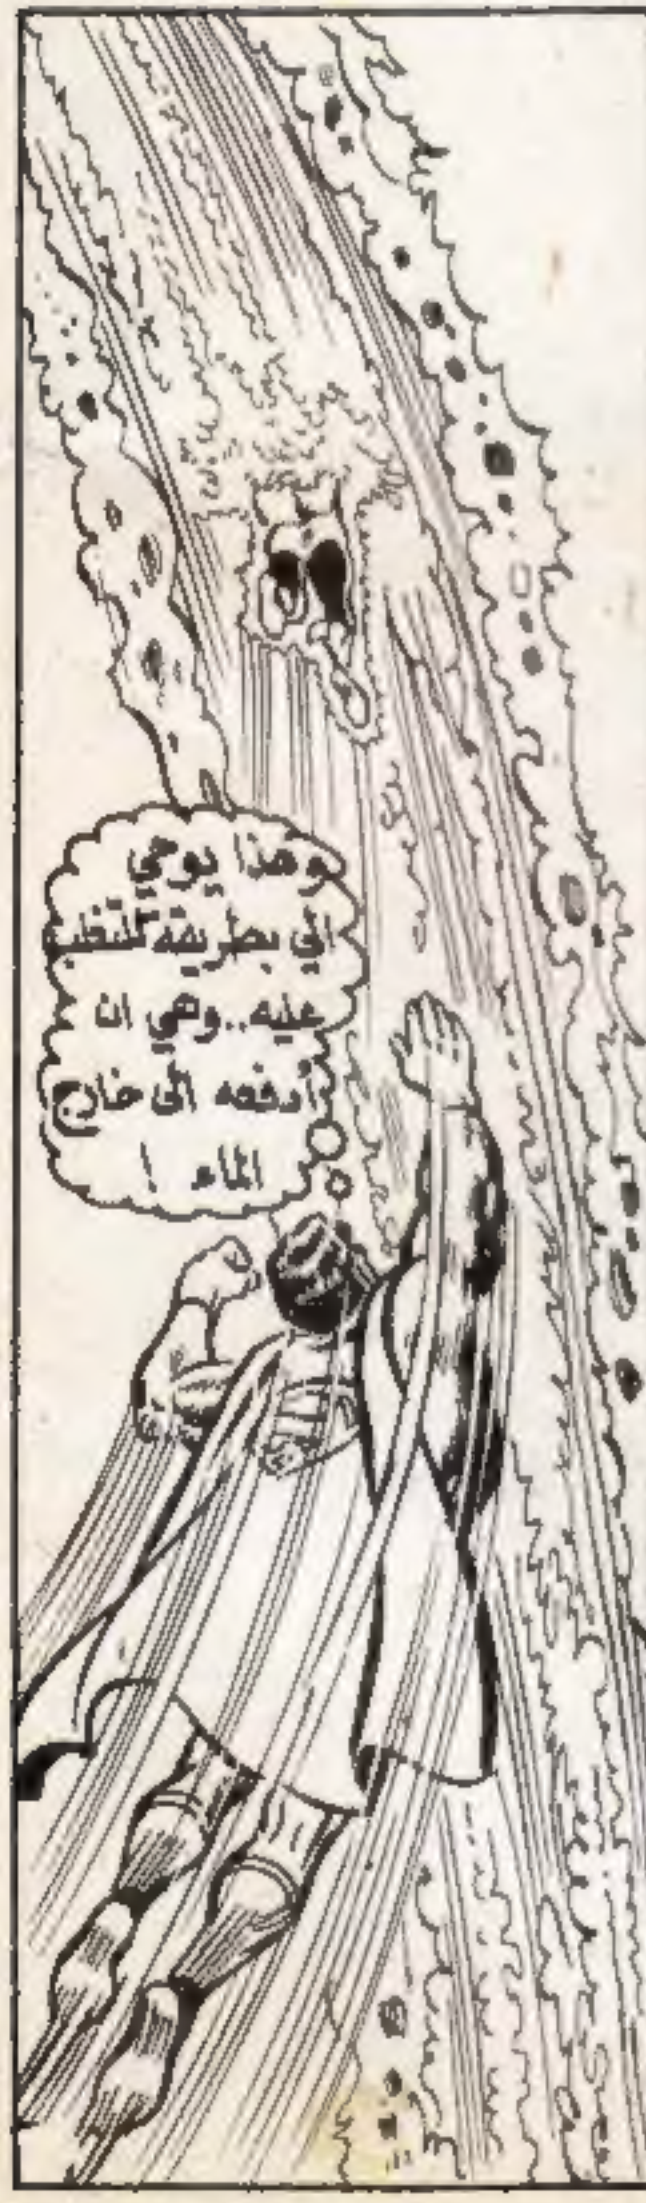 وهذا يوحي
الي بطريقة للتغلب
عليه..وهي ان
أدفعه الى خارج
الماء !